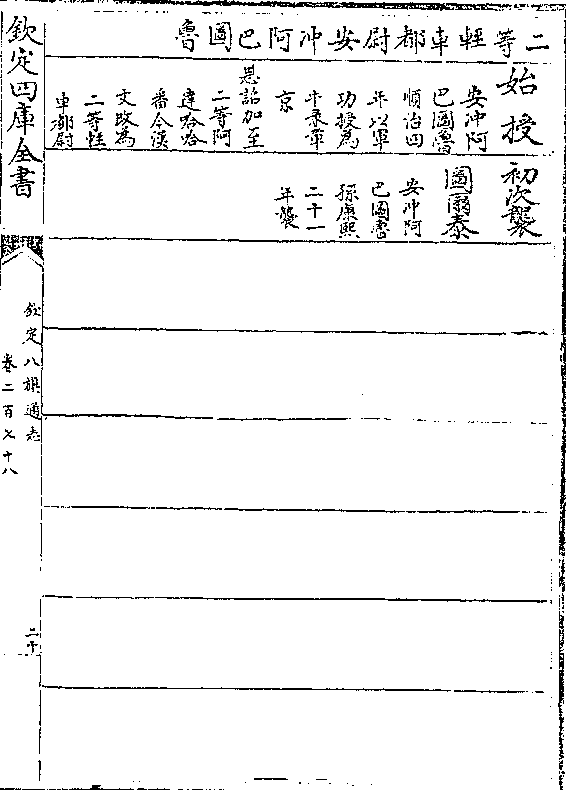 二等輕車都尉安冲阿巴圖魯
始授
安冲阿
巴圖魯
順治四
年以軍
功授為
牛彔章
京
恩詔加至
二等阿
達哈哈
番今漢
文改為
二等輕
車都尉
初次襲
圖爾泰
安冲阿
巴圖魯
孫康熙
二十一
年襲
欽定四庫全書
欽定八旗通志
卷二百七十八
二十